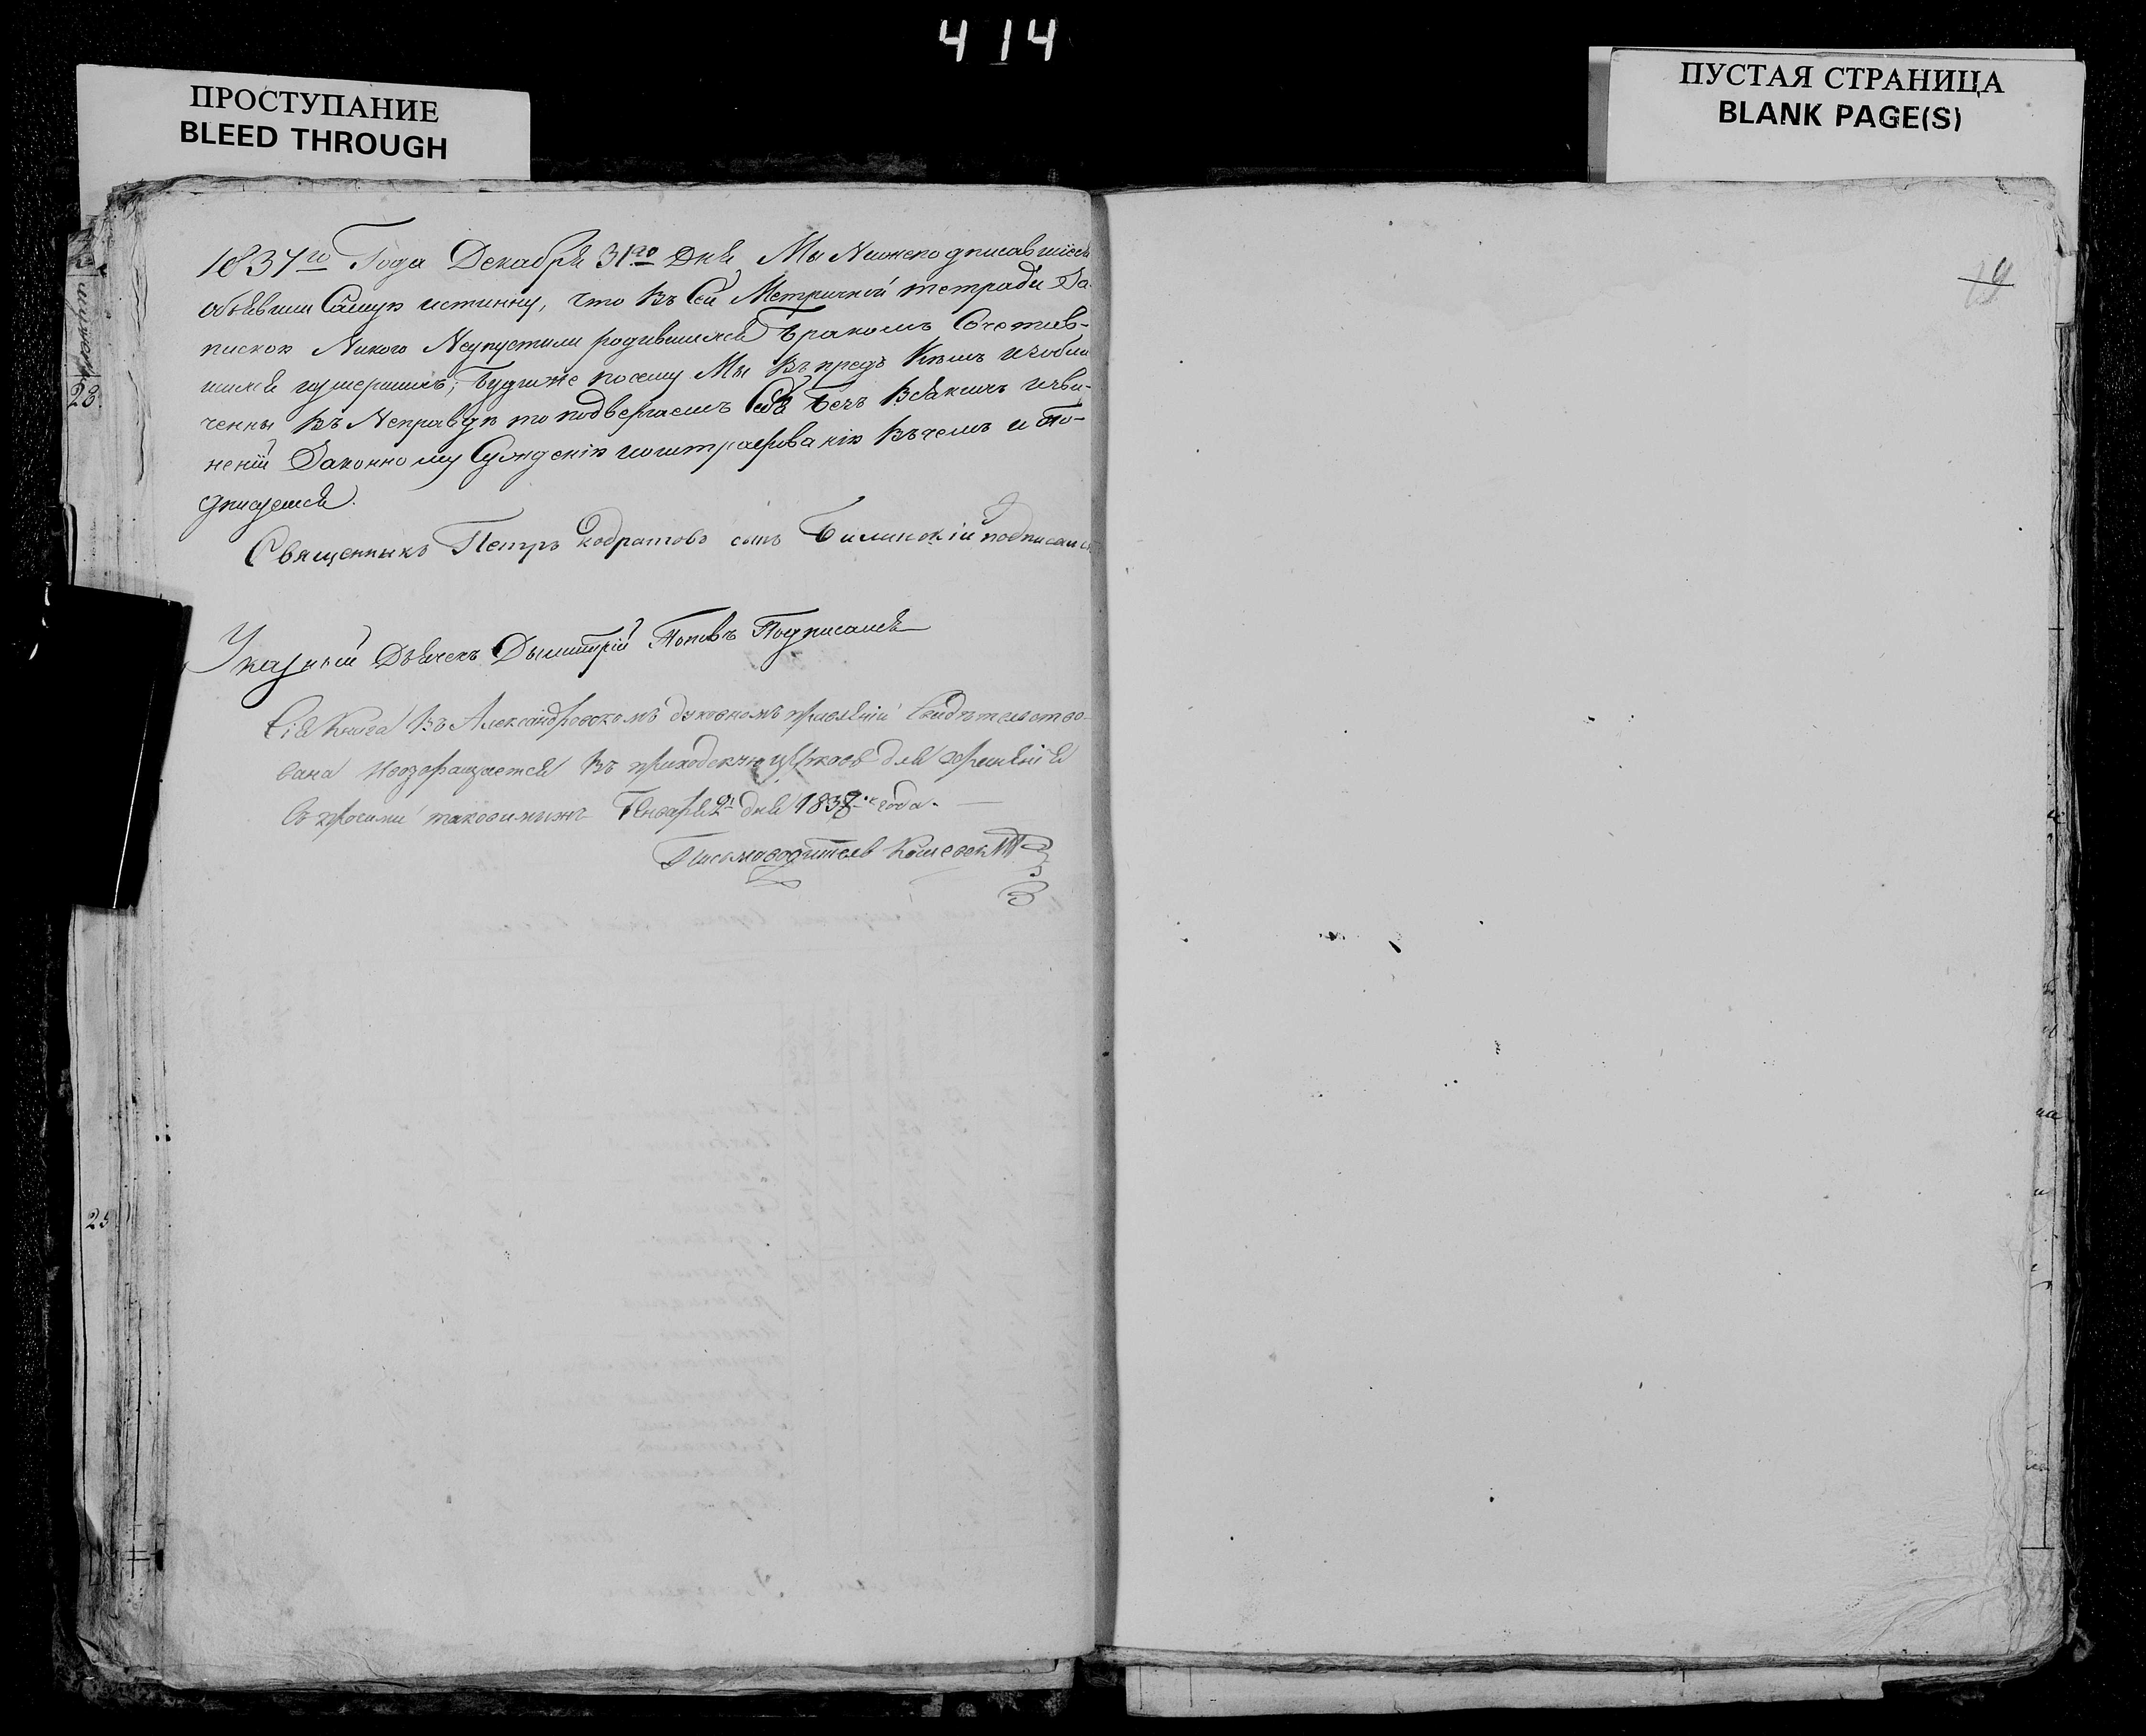 414
ПРОСТУПАНИЕ
BLEED THROUGH
ПУСТАЯ СТРАНИЦА
BLANK PAGE(S)
1837го Года Декабря 31го Дня Мы Нижеподписавшіеся
объявили Самую истинну, что въ Сей Метричной тетради За-
пискою Никого Неупустили родившихся Бракомъ Сочетав-
шихся иумершихъ; Будиже посему Мы Въпредъ Кемъ изобли
ченны Въ Неправдѣ то подвергаемъ Себя Безъ Всякихъ изви-
неній Законному Сужденію иоштрафованію Вчемъ и По-
дписуемся.
Священникъ Петръ Кодратовъ сынъ Билинскій подписался
Указный Дьячекъ Дымитрій Поповъ Подписался
Сія Книга Въ Александровскомъ духовномъ правленіи Свидѣтельство-
вана Ивозвращается Въ приходскую церковь для храненія
Съ прочими таковымижъ Генваря 2 дня 1838го года.
Письмоводитель
28.
25